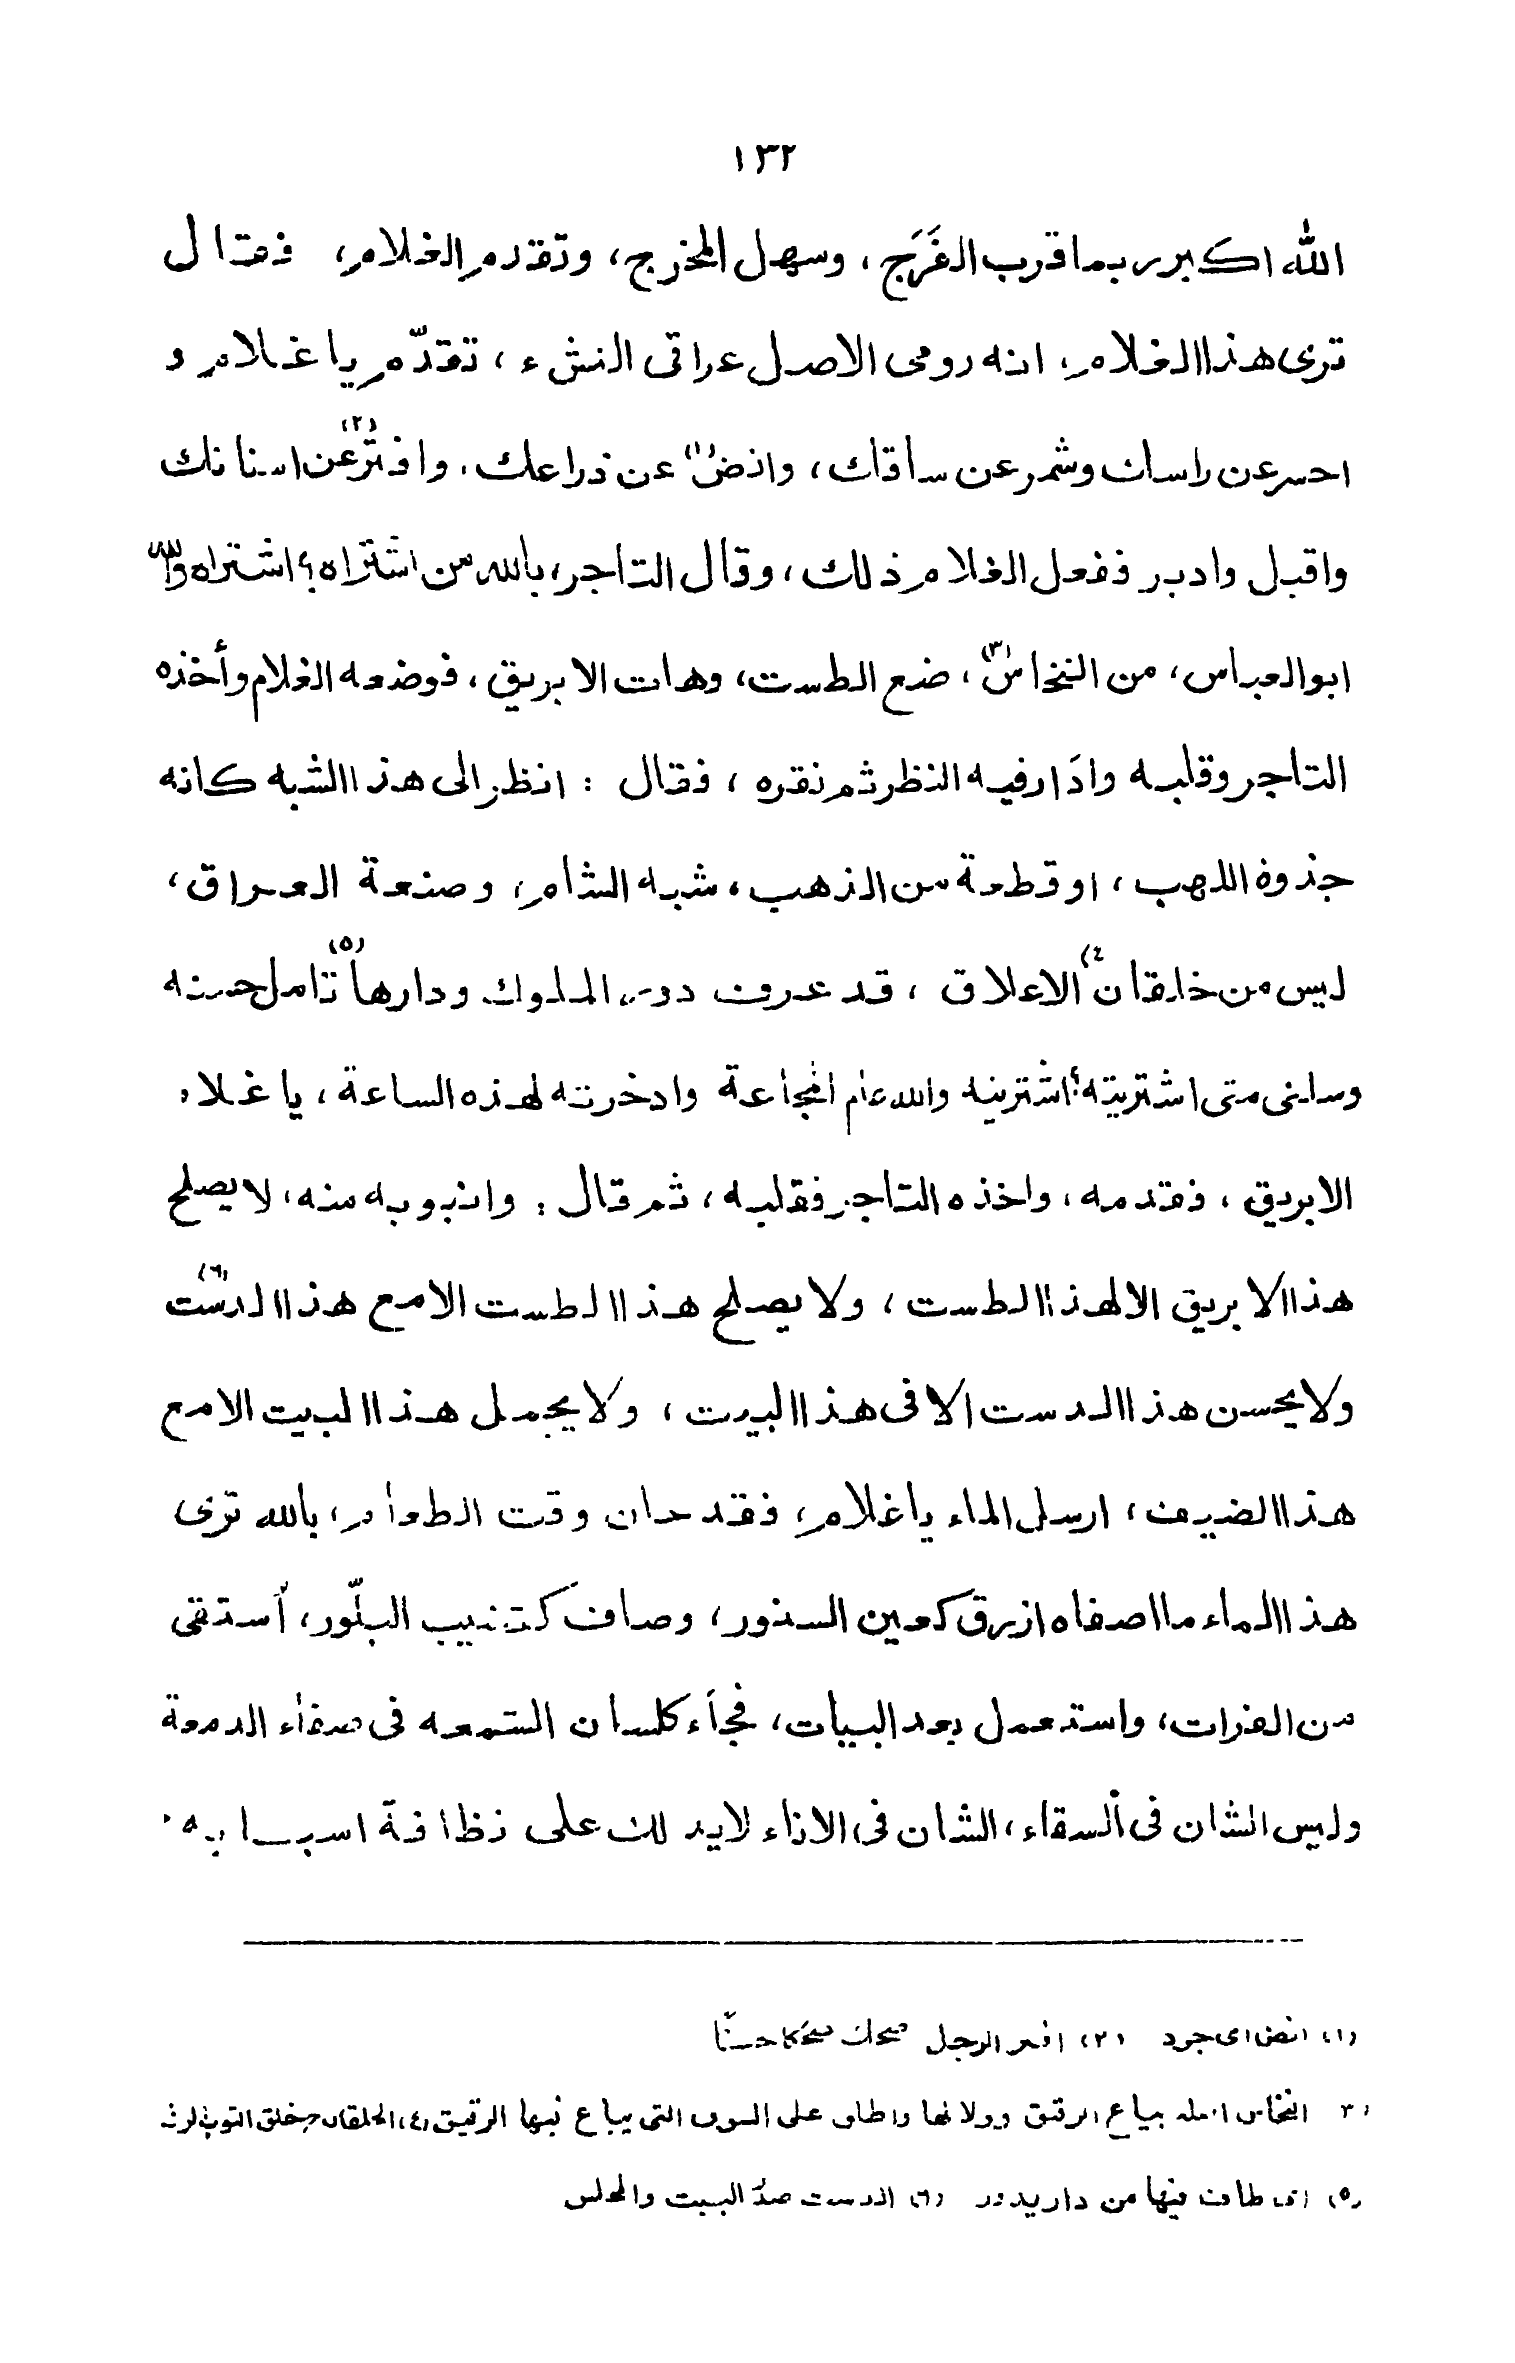 ١٣٢
الله اكبر ربما قرب الفَرَج ، وسهل المخرج ، وتقدم الغلام ، فقال
ترى هذا الغلام ، انه رومى الاصل عراقى النشء ، تقدّم يا غلام و
احسر عن راسك وشمر عن ساقك ، وانض(١) عن ذراعك ، وافتر(٢) عن اسنانك
واقبل وادبر ففعل الغلام ذلك ، وقال التاجر ، بالله من اشتراه ؟ اشتراه والله
ابوالعباس ، من النخاس(٣) ، ضع الطست ، وهات الابريق ، فوضعه الغلام وأخذه
التاجر وقلبه وادَار فيه النظر ثم نقره ، فقال : انظر الى هذا الشبه كانه
جذوة اللهب ، او قطعة من الذهب ، شبه الشام ، وصنعة العراق ،
ليس من خلقان(٤) الاعلاق ، قد عرف دور الملوك ودارها(٥) تامل حسنه
وسلنى متى اشتريته ؟ اشتريته والله عام المجاعة وادخرته لهذه الساعة ، يا غلام
الابريق ، فقدمه ، واخذه التاجر فقلبه ، ثم قال : وانبوبه منه ، لا يصلح
هذا الابريق الا لهذا الطست ، ولا يصلح هذا الطست الامع هذا الدست(٦)
ولا يحسن هذا الدست الا فى هذا البيت ، ولا يجمل هذا البيت الامع
هذا الضيف ، ارسل الماء يا غلام ، فقد حان وقت الطعام ، بالله ترى
هذا الماء ما اصفاه ازرق كعين السنور ، وصاف كقضيب البلّور ، أستقى
من الفرات ، واستعمل بعد البيات ، فجاء كلسان الشمعه فى صفاء الدمعة
وليس الشان فى السقاء ، الشان فى الاناء لا يدلك على نظافة اسبابه ،
(١) انض اى جرد (٢) افتر الرجل ضحك ضحكا حسنًا
(٣) النخاس اصله بياع الرقيق ودلالها واطلق على السوق التى يباع فيها الرقيق (٤) الخلقان ج خلق الثوب الرث
(٥) اى طاف فيها من دار يدور (٦) الدست صدر البيت والمجلس